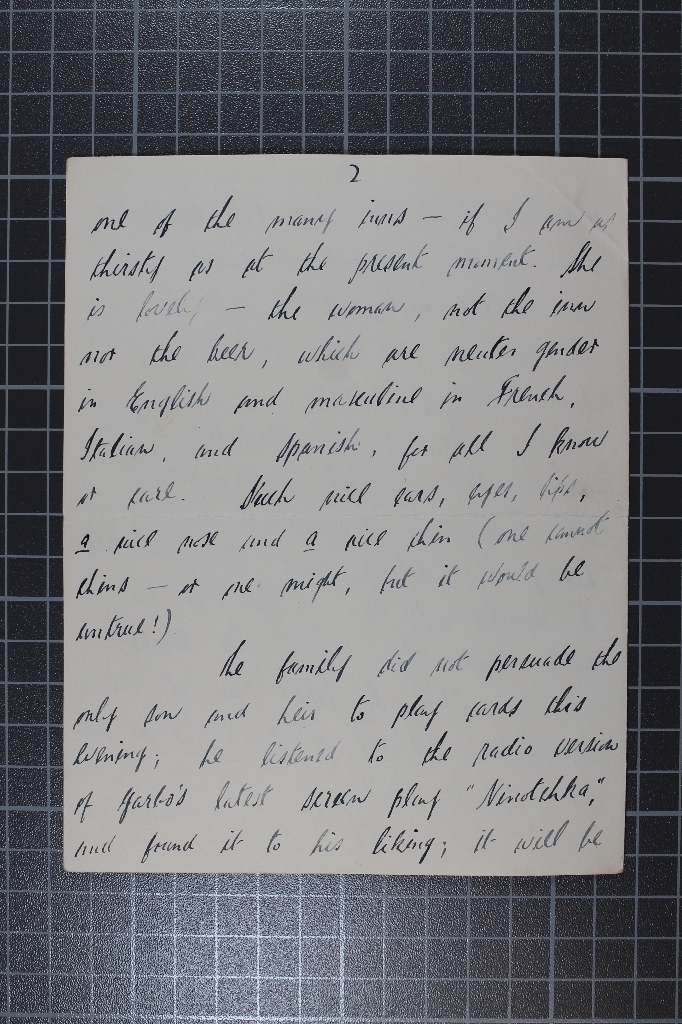 2
one of the many inns – if I am as
thirsty as at the present moment. She
is lovely – the woman, not the inn
nor the beer, which are neuter gender
in English and masculine in French,
Italian, and Spanish, for all I know
or care. Such nice ears, eyes, lips,
a nice nose and a nice chin (one cannot
chins – or one might, but it would be
untrue!)
The family did not persuade the
only son and heir to play cards this
evening; he listened to the radio version
of Garbo's latest screen play "Ninotchka",
and found it to his liking; it will be